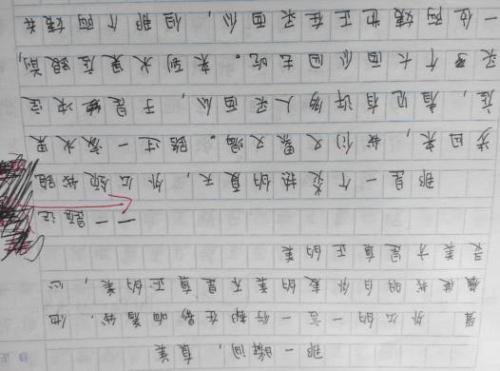 那一瞬间，真美
是外公的一言一行都在影响着我，他
最使我明白外表的美不是真正的美，心
灵美才是真正的美
——题记
那是一个炎热的夏天，外公领我跑
步回来，我们又累又渴。路过一家水果
店，相见有许多人买面瓜，于是决定
买个大面瓜回去吃。来到水果店跟前，
一位阿姨也正在买面瓜，但那个阿姨长